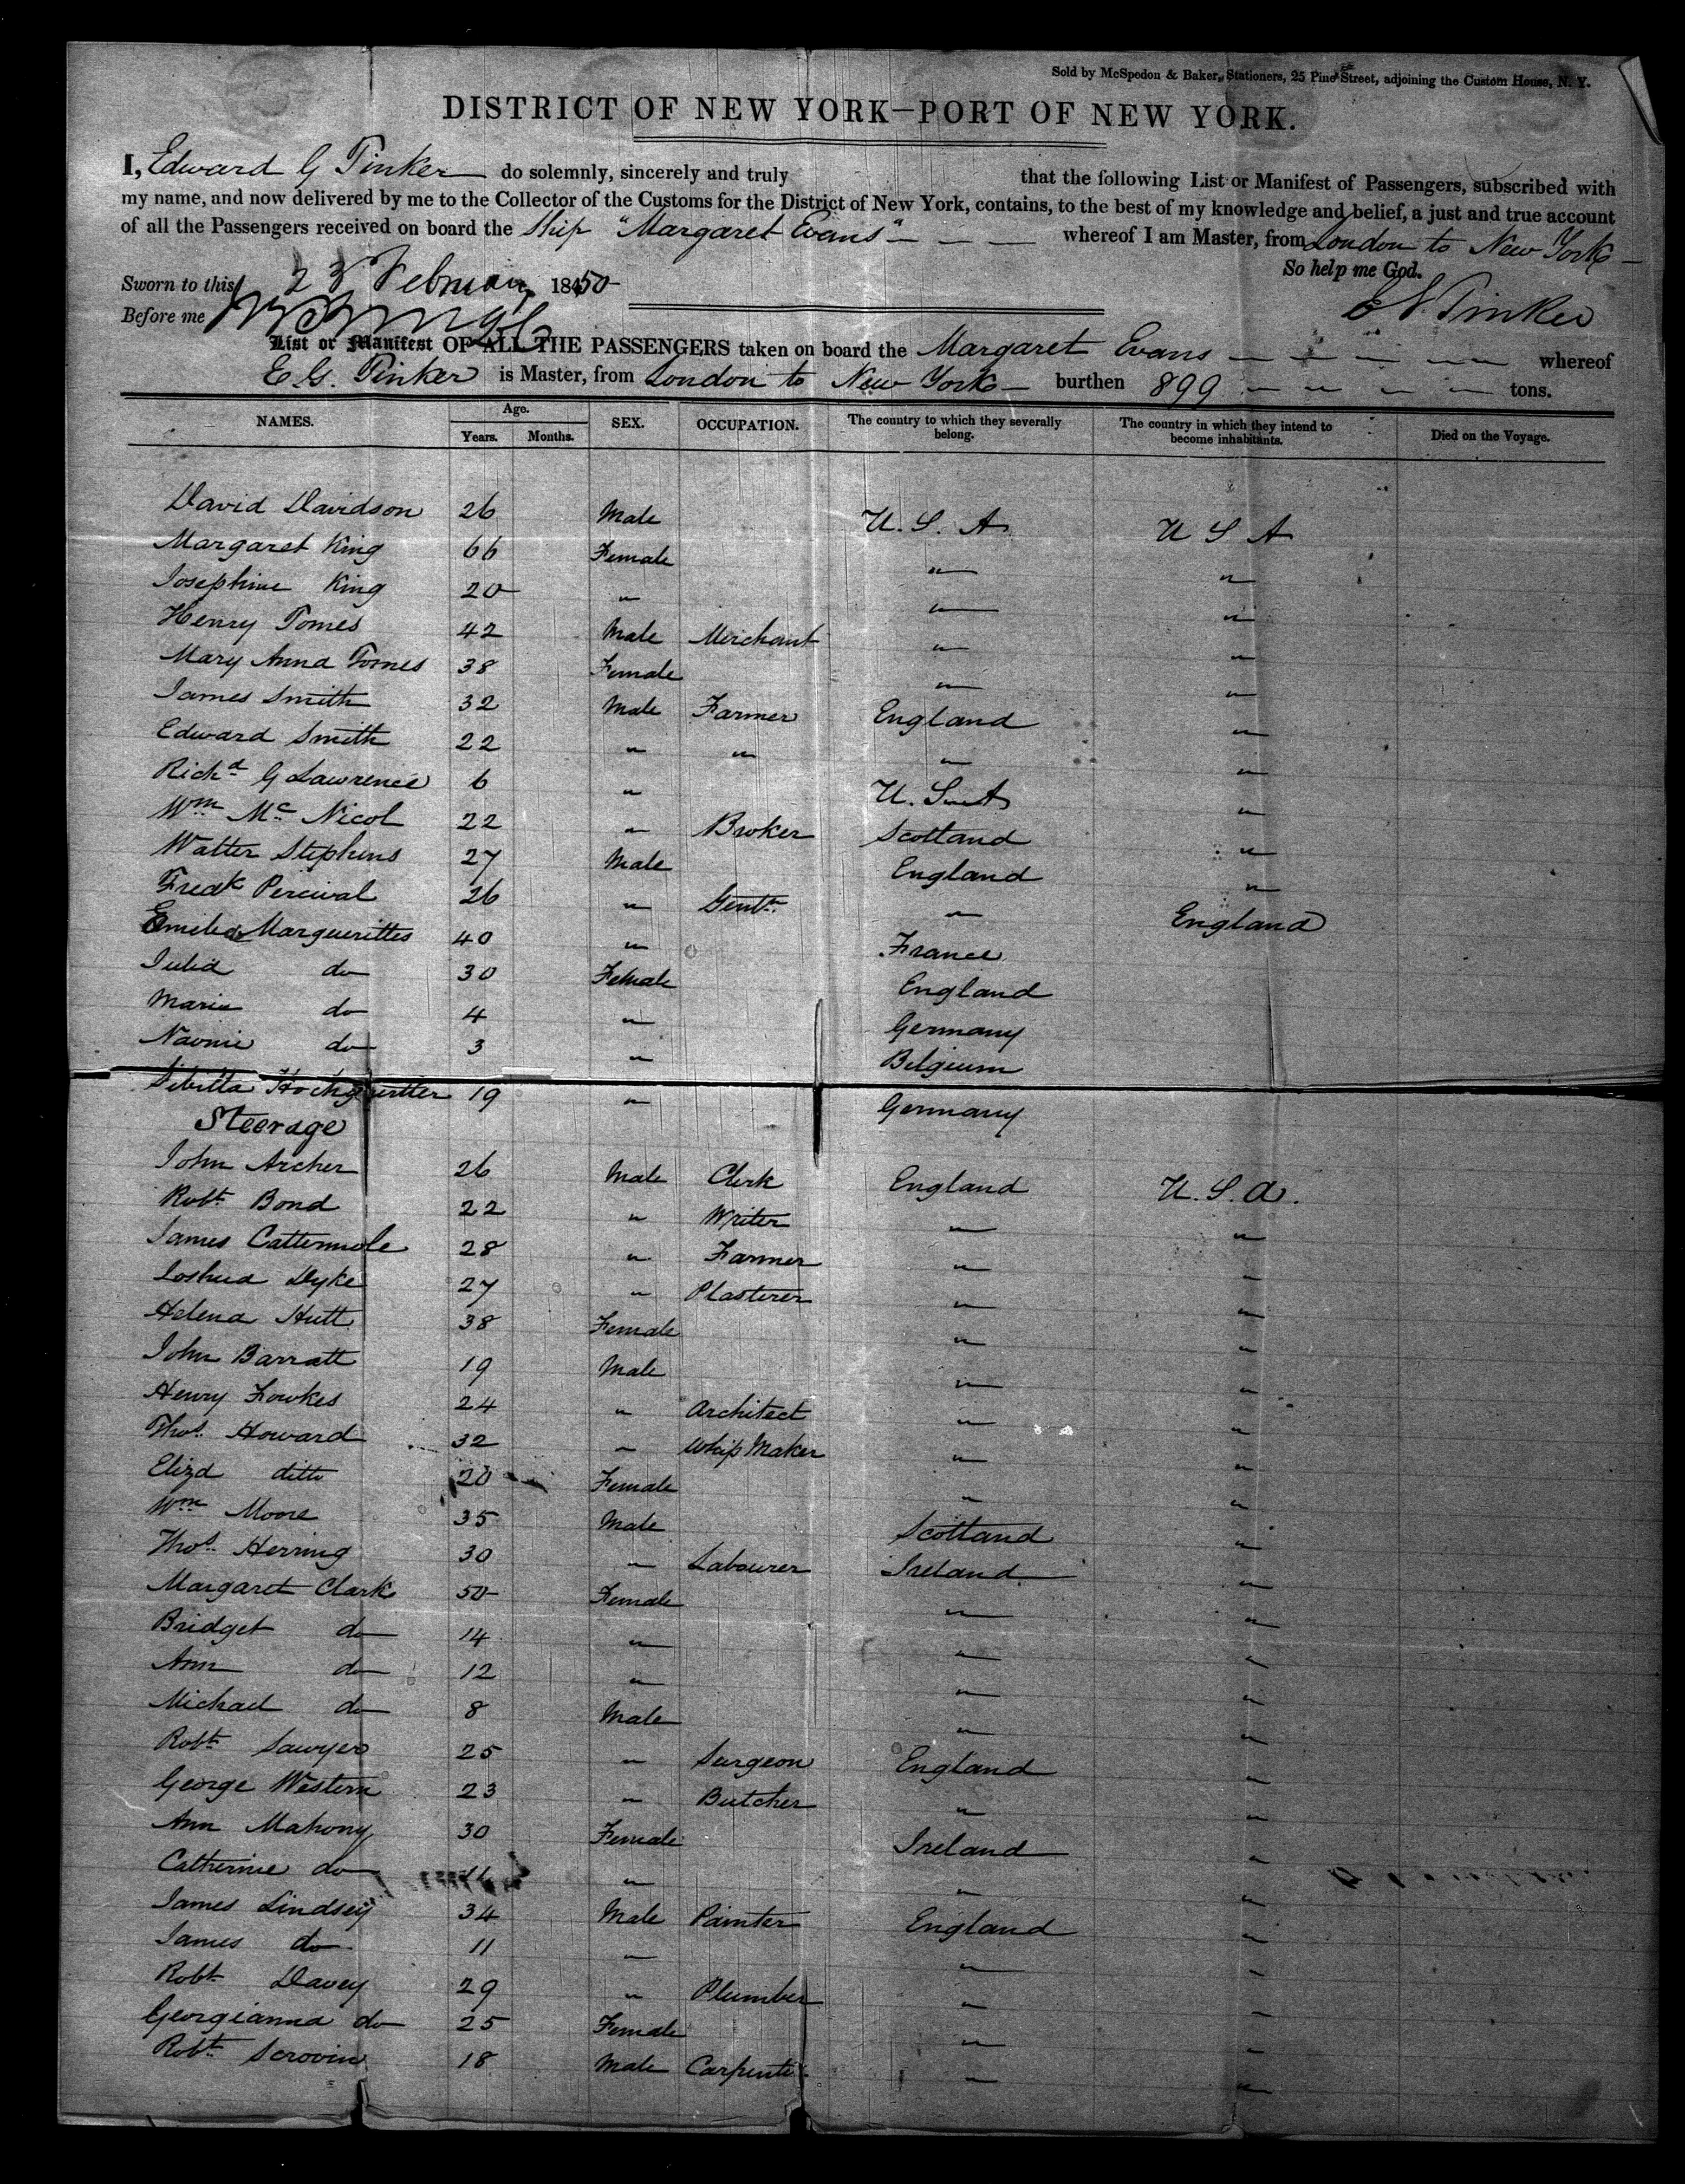 Sold by McSpedon & Baker, Stationers, 25 Pine Street, adjoining the Custom House, N. Y.
DISTRICT OF NEW YORK—PORT OF NEW YORK.
I, Edward G Tinker do solemnly, sincerely and truly that the following List or Manifest of Passengers, subscribed with
my name, and now delivered by me to the Collector of the Customs for the District of New York, contains, to the best of my knowledge and belief, a just and true account
of all the Passengers received on board the Ship "Margaret Evans" whereof I am Master, from London to New York
So help me God.
Sworn to this 23 February 1850
E G Tinker
Before me
List or Manifest OF ALL THE PASSENGERS taken on board the Margaret Evans whereof
E G. Tinker is Master, from London to New York burthen 899 tons.
NAMES. Age. Years. Months. SEX. OCCUPATION. The country to which they severally belong. The country in which they intend to become inhabitants. Died on the Voyage.
David Davidson 26 Male U. S. A U S A
Margaret King 66 Female " "
Josephine King 20 " " "
Henry Tomes 42 Male Merchant " "
Mary Anna Tomes 38 Female " "
James Smith 32 Male Farmer England "
Edward Smith 22 " " " "
Richd G Lawrence 6 " U. S. A "
Wm Mc Nicol 22 " Broker Scotland "
Walter Stephens 27 Male England "
Fredk Percival 26 " Gentn " England
Marguerittes 40 " France
Julia do 30 Female England
Marie do 4 " Germany
Naomie do 3 " Belgium
Sibilla 19 " Germany
Steerage
John Archer 26 Male Clerk England U. S. A.
Robt Bond 22 " Writer " "
James Cattermole 28 " Farmer " "
Joshua Dyke 27 " Plasterer " "
Helena Hutt 38 Female " "
John Barratt 19 Male " "
Henry Fowkes 24 " Architect " "
Thos. Howard 32 " Whip Maker " "
Eliza ditto 20 Female " "
Wm Moore 35 Male Scotland "
Thos. Herring 30 " Labourer Ireland "
Margaret Clark 50 Female " "
Bridget do 14 " " "
Ann do 12 " " "
Michael do 8 Male " "
Robt Sawyer 25 " Surgeon England "
George Western 23 " Butcher " "
Ann Mahony 30 Female Ireland "
Catherine do " " "
James Lindsey 34 Male Painter England "
James do 11 " " "
Robt Davey 29 " Plumber " "
Georgianna do 25 Female " "
Robt 18 Male Carpenter " "